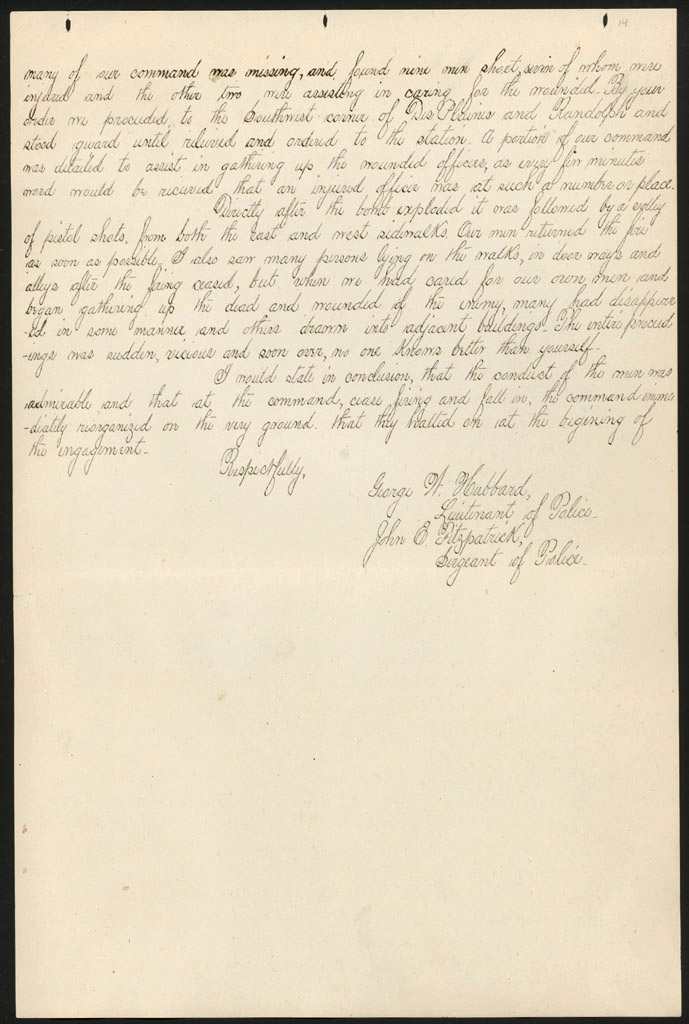 19
many of our command was missing, and found nine men short, seven of whom were
injured and the other two were assisting in caring for the wounded. By your
order we proceeded to the Southwest corner of Des Plaines and Randolph and
stood guard until relieved and ordered to the station. A portion of our command
was detailed to assist in gathering up the wounded officers, as every few minutes
word would be received that an injured officer was at such a number or place.
Directly after the bomb exploded it was followed by a volley
of pistol shots, from both the east and west sidewalks. Our men returned the fire
as soon as possible, I also saw many persons lying on the walks, in door ways and
alleys after the firing ceased, but when we had cared for our own men and
began gathering up the dead and wounded of the enemy, many had disappear
-ed in some manner and others drawn into adjacent buildings. The entire proceed
-ings was sudden, vicious and soon over, no one knows better than yourself.
I would state in conclusion, that the conduct of the men was
admirable and that at the command, cease firing and fall in, the command imme
-diatly reorganized on the very ground. that they halted on at the begining of
the engagement.
Respectfully,
George W. Hubbard,
Lieutenant of Police.
John E. Fitzpatrick,
Sergeant of Police.